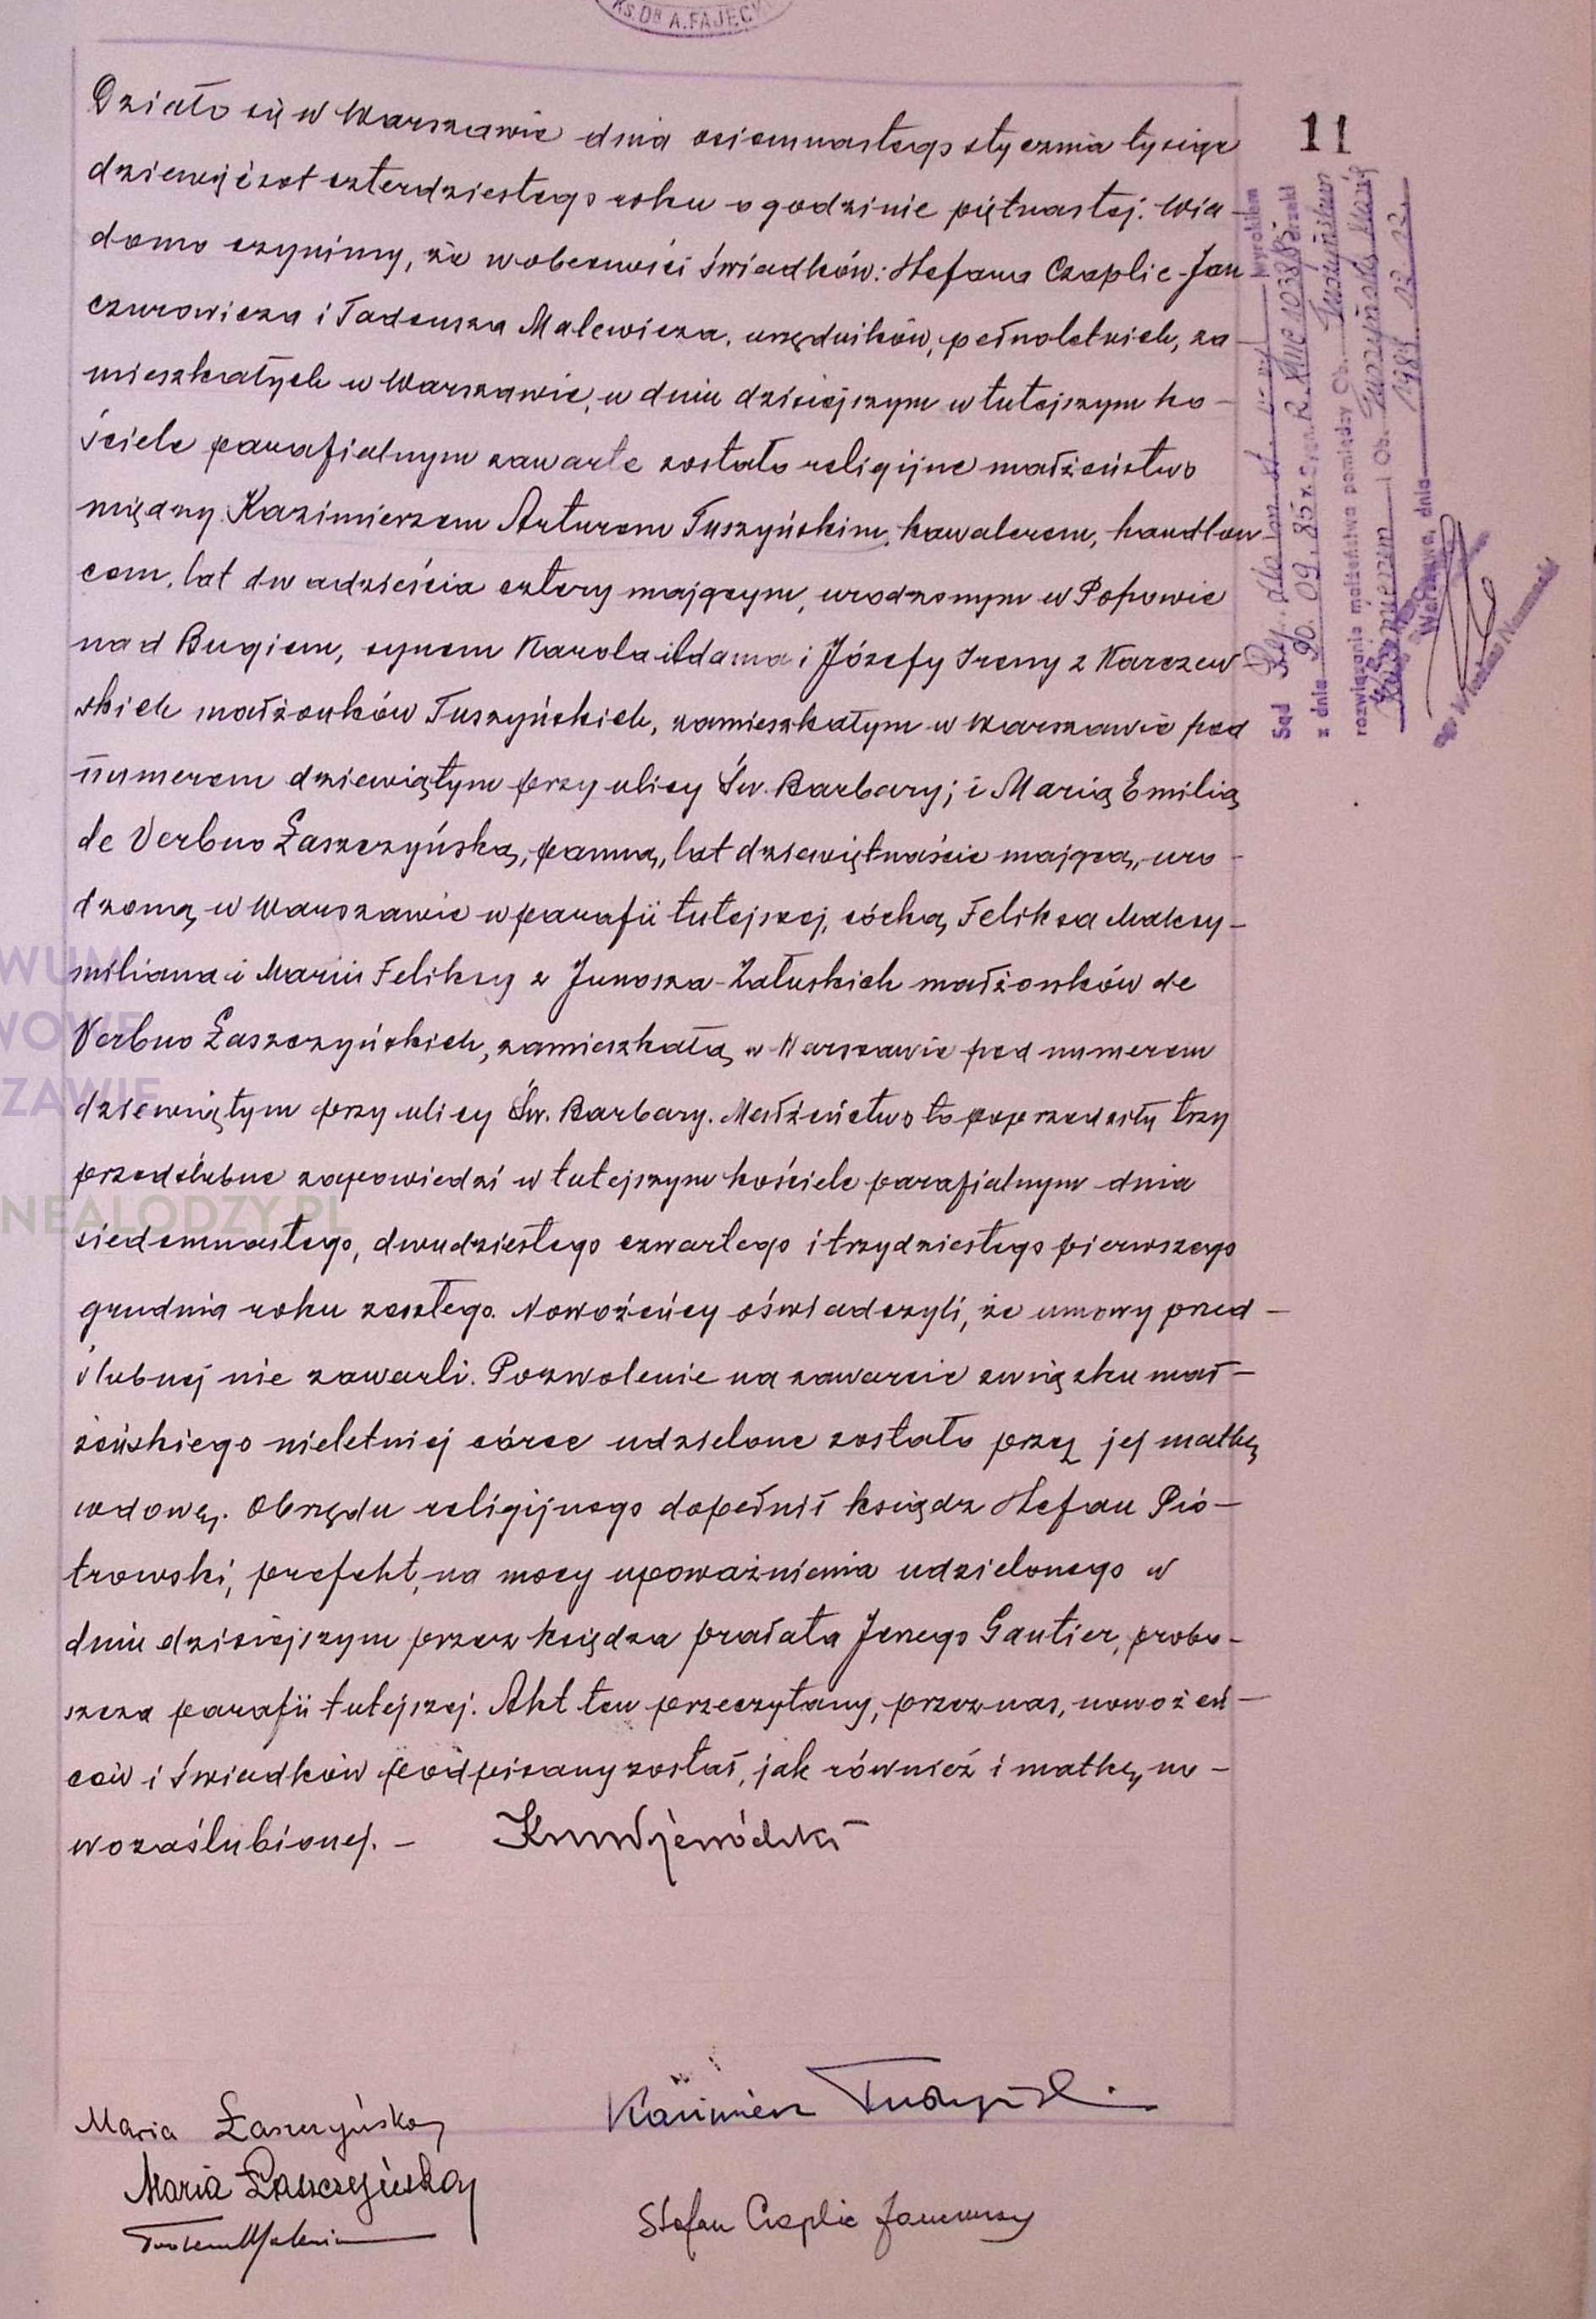 KS. DR A. FAJĘCKI
11
Działo się w Warszawie dnia osiemnastego stycznia tysiąc
dziewięćset czterdziestego roku o godzinie piętnastej. Wia-
domo czynimy, że w obecności świadków: Stefana Czaplic-Jan
czurowicza i Tadeusza Malewicza, urzędników, pełnoletnich, za-
mieszkałych w Warszawie, w dniu dzisiejszym w tutejszym ko-
ściele parafialnym zawarte zostało religijne małżeństwo
między Kazimierzem Arturem Tuszyńskim, kawalerem, handlow
cem, lat dwadzieścia cztery mającym, urodzonym w Popowie
nad Bugiem, synem Karola Adama i Józefy Ireny z Karczew
skich małżonków Tuszyńskich, zamieszkałym w Warszawie pod
numerem dziewiątym przy ulicy Św. Barbary; i Marią Emilią
de Verbno Łaszczyńską, panną, lat dziewiętnaście mającą, uro-
dzoną w Warszawie w parafii tutejszej, córką Feliksa Maksy-
miliana i Marii Feliksy z Junosza-Załuskich małżonków de
Verbno Łaszczyńskich, zamieszkałą w Warszawie pod numerem
dziewiątym przy ulicy Św. Barbary. Małżeństwo to poprzedziły trzy
przedślubne zapowiedzi w tutejszym kościele parafialnym dnia
siedemnastego, dwudziestego czwartego i trzydziestego pierwszego
grudnia roku zeszłego. Nowożeńcy oświadczyli, że umowy przed-
ślubnej nie zawarli. Pozwolenie na zawarcie związku mał-
żeńskiego nieletniej córce udzielone zostało przez jej matkę
wdowę. Obrzędu religijnego dopełnił ksiądz Stefan Pio-
trowski, prefekt, na mocy upoważnienia udzielonego w
dniu dzisiejszym przez księdza prałata Jerzego Gautier, probo-
szcza parafii tutejszej. Akt ten przeczytany, przez nas, nowożeń-
ców i świadków podpisany został, jak również i matkę no-
wozaślubionej. -
Maria Łaszczyńska
Kazimierz Tuszyński
Maria Łaszczyńska
Stefan Czaplic
Sąd Rej. dla
z dnia 30.09.85 r.
rozwiązanie małżeństwa pomiędzy Ob. Tuszyńskim
Kazimierzem i Ob. Tuszyńską Marią
Warszawa, dnia
WUM
WOWE
ZAWIE
NEALODZY.PL